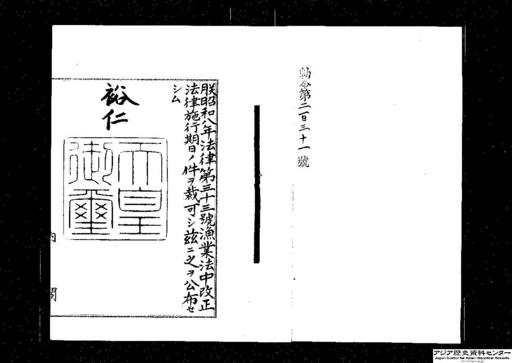 勅令第二百三十一號
朕昭和八年法律第三十三號漁業法中改正
法律施行期日ノ件ヲ裁可シ茲ニ之ヲ公布セ
シム
裕仁
天皇
御璽
内閣
アジア歴史資料センター
Japan Center for Asian Historical Records